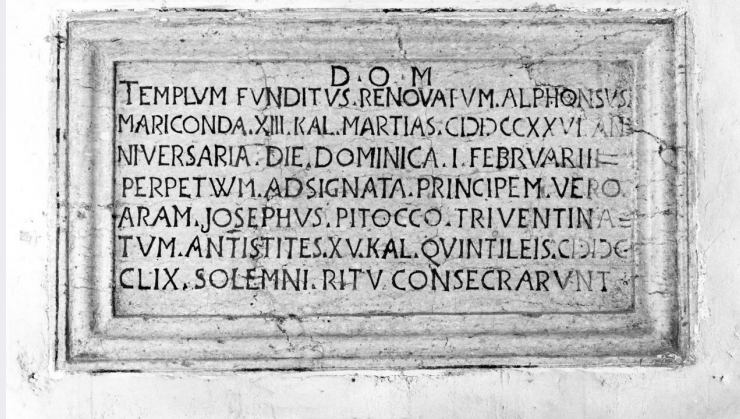 D·O·M
TEMPLVM FVNDITVS.RENOVATVM.ALPHONSVS.
MARICONDA.XIII.KAL.MARTIAS.CIƆIƆCCXXVI AN=
NIVERSARIA.DIE.DOMINICA.I.FEBRVARII=
PERPETVVM.ADSIGNATA.PRINCIPEM.VERO
ARAM.JOSEPHVS.PITOCCO.TRIVENTINA=
TVM.ANTISTITES.XV.KAL.QVINTILEIS.CIƆIƆC
CLIX.SOLEMNI.RITV CONSECRARVNT